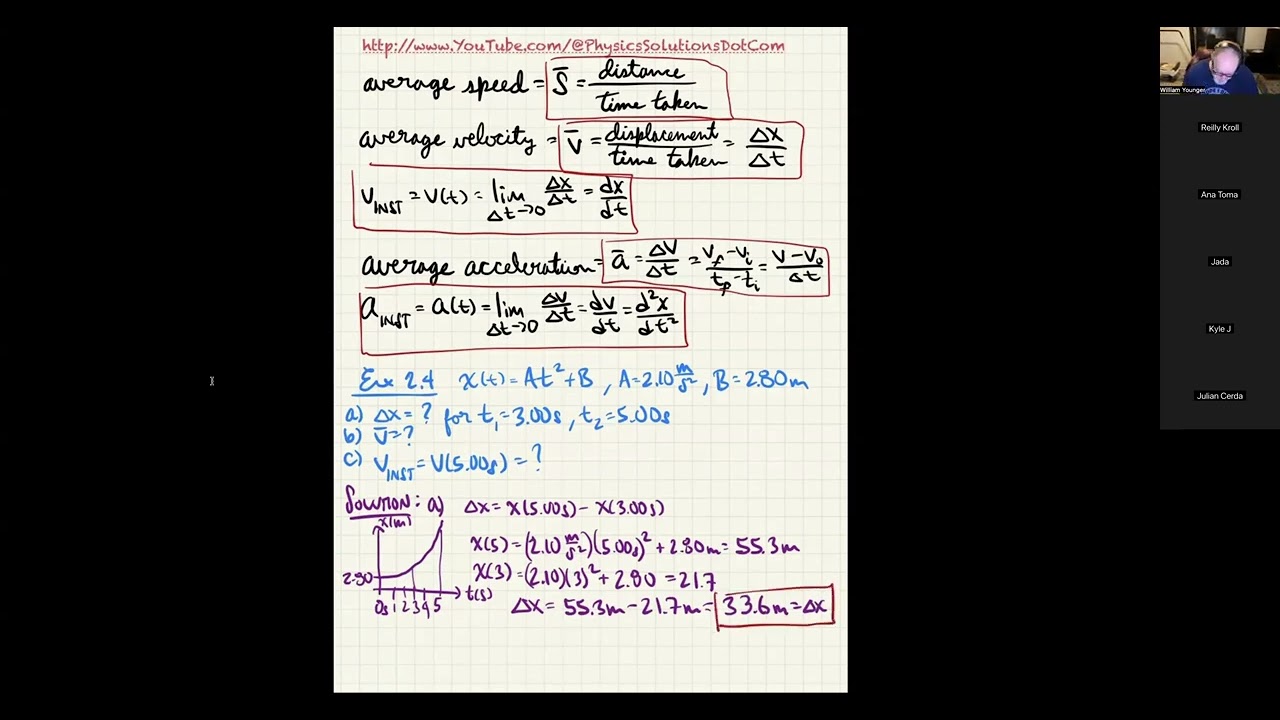 http://www.YouTube.com/@PhysicsSolutionsDotCom
average speed = S̄ = distance / time taken
average velocity = v̄ = displacement / time taken = Δx / Δt
V_INST = V(t) = lim_{Δt→0} Δx/Δt = dx/dt
average acceleration = ā = Δv/Δt = (v_f - v_i)/(t_f - t_i) = (v - v_0)/Δt
a_INST = a(t) = lim_{Δt→0} Δv/Δt = dv/dt = d²x/dt²
Ex 2.4 x(t) = At² + B , A = 2.10 m/s² , B = 2.80 m
a) Δx = ? for t₁ = 3.00s , t₂ = 5.00s
b) v̄ = ?
c) V_INST = V(5.00s) = ?
Solution: a) Δx = x(5.00s) - x(3.00s)
x(m)
x(5) = (2.10 m/s²)(5.00s)² + 2.80m = 55.3m
x(3) = (2.10)(3)² + 2.80 = 21.7
2.80
t(s)
0s 1 2 3 4 5
Δx = 55.3m - 21.7m = 33.6m = Δx
William Younger
Reilly Kroll
Ana Toma
Jada
Kyle J
Julian Cerda